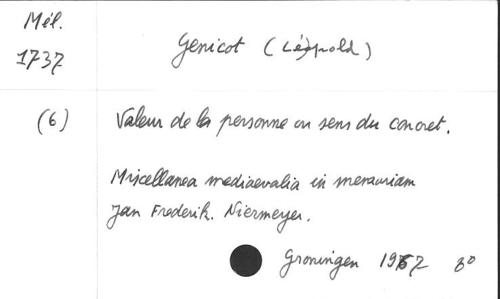 Mél.
1737
Genicot (Léopold)
(6)
Valeur de la personne ou sens du concret.
Miscellanea mediaevalia in memoriam
Jan Frederik. Niermeyer.
Groningen 1967 8°